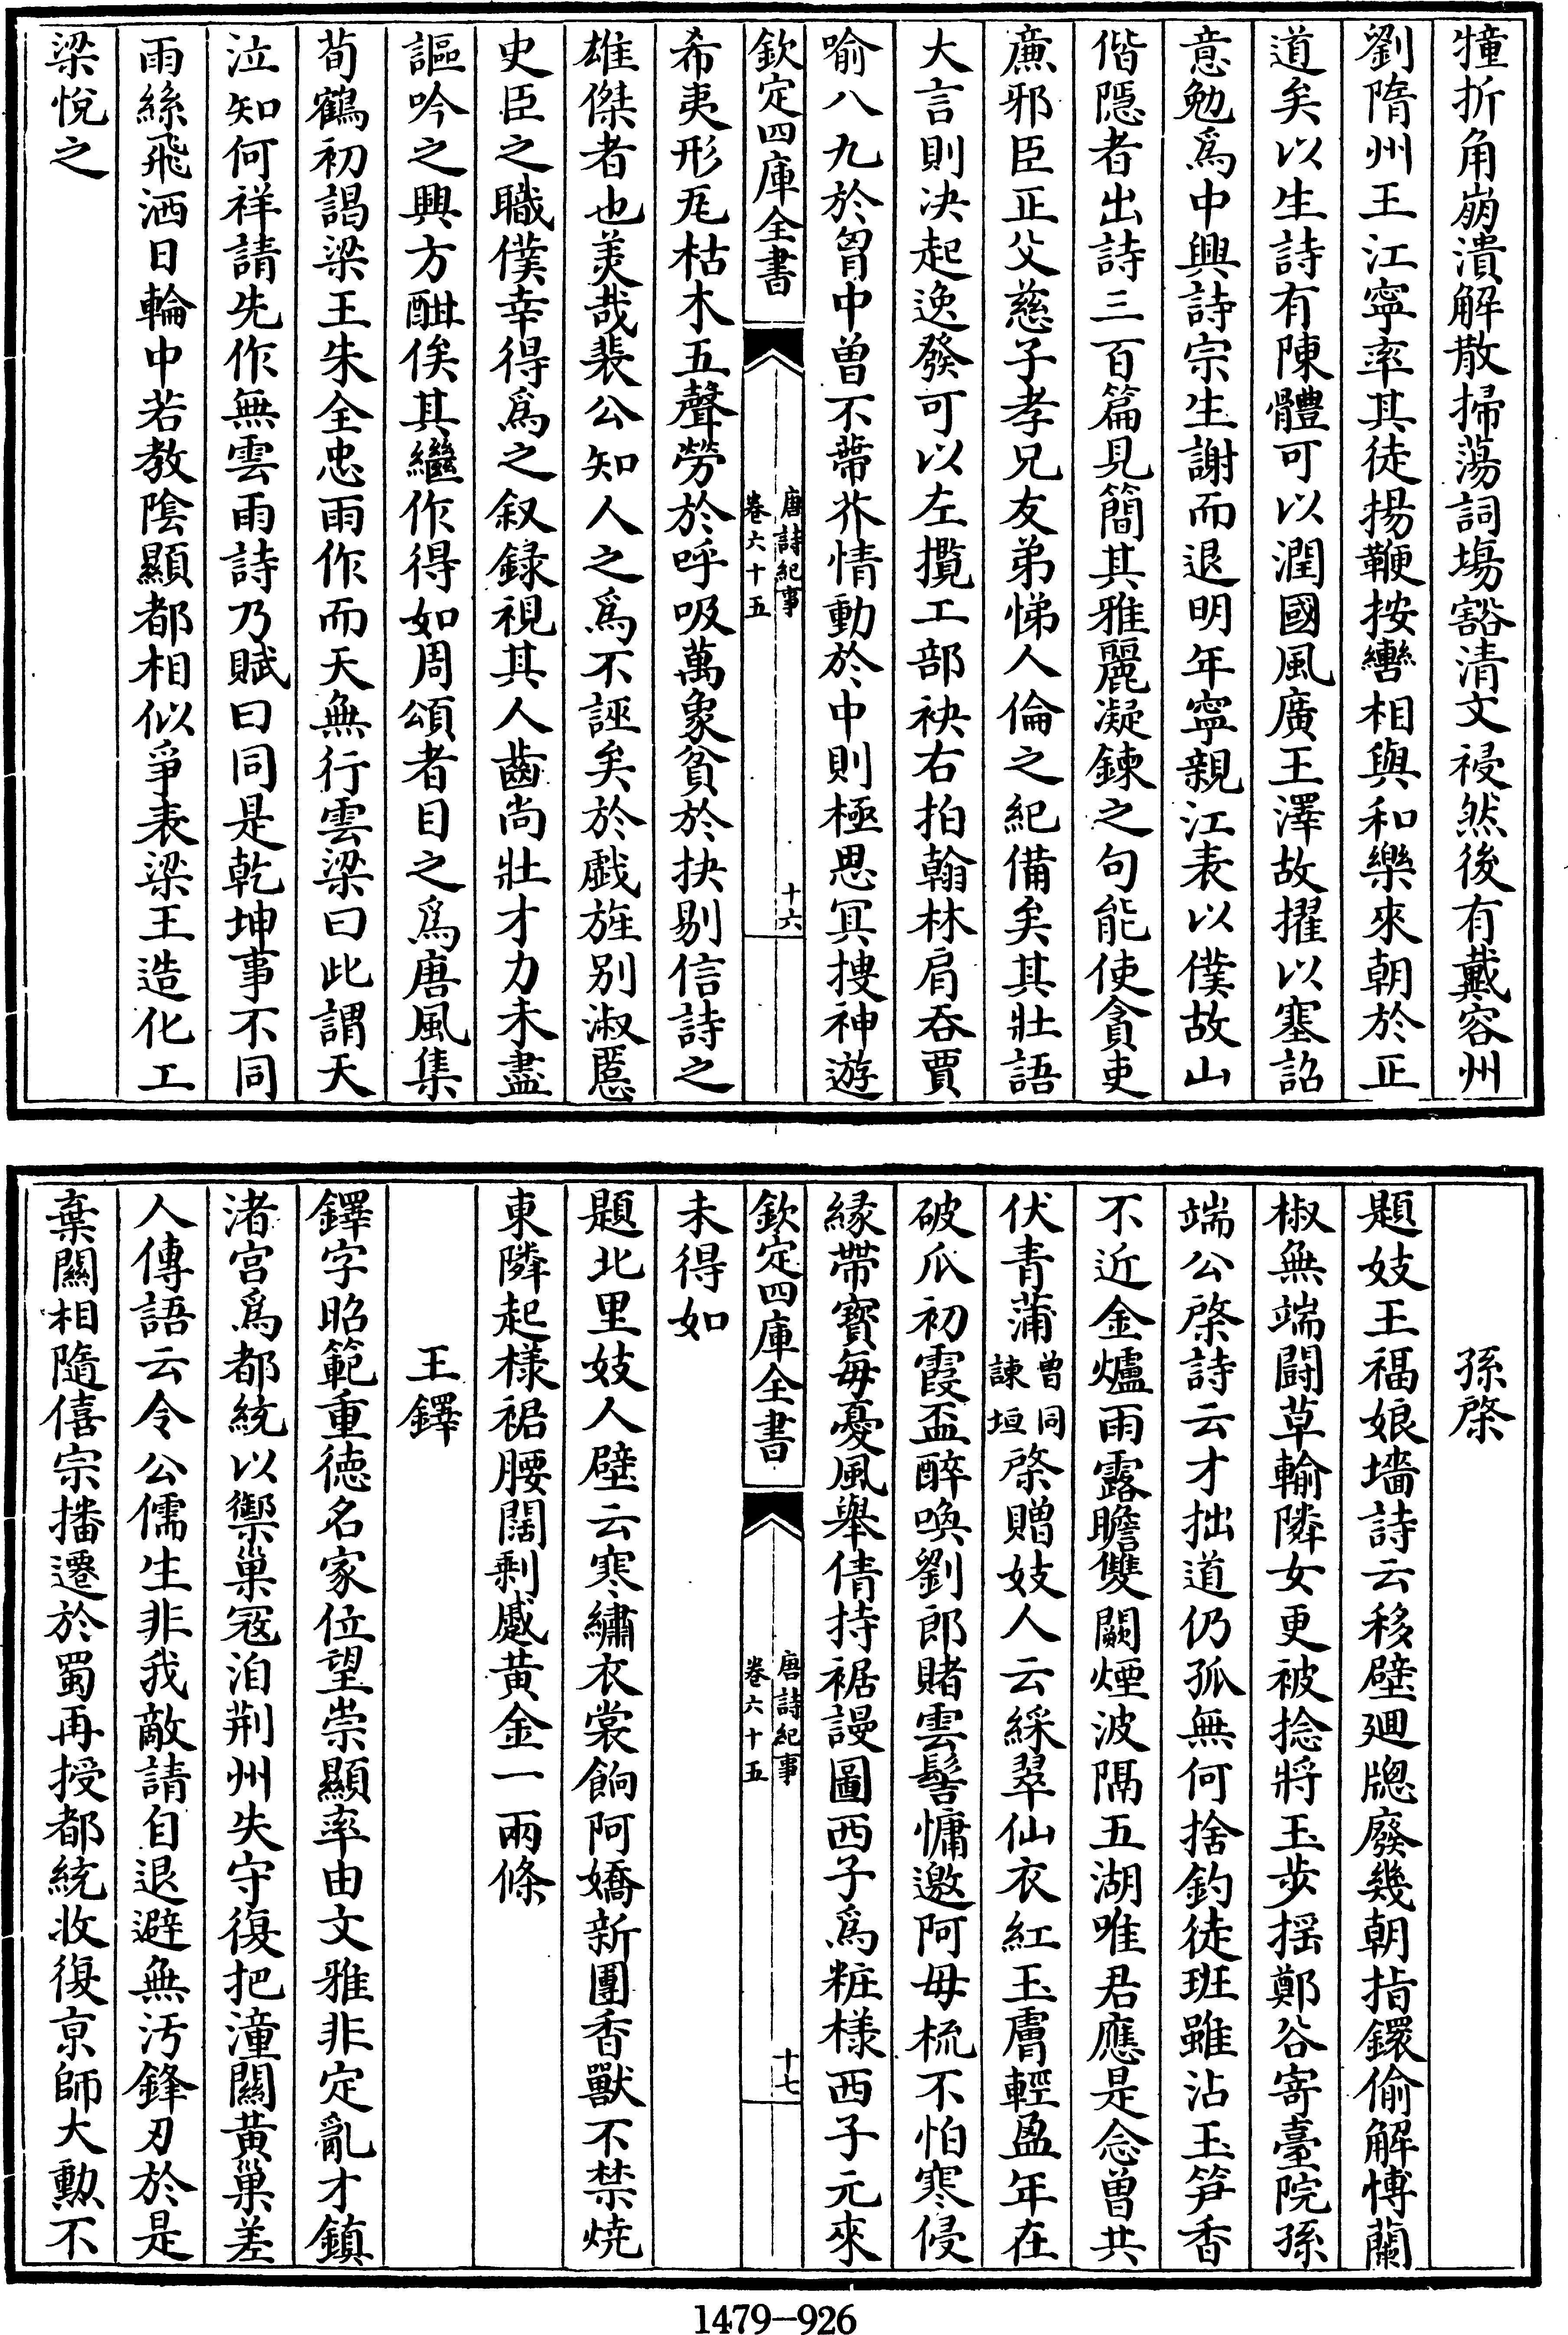 犝折角崩潰解散掃蕩詞塲豁清文祲然後有戴容州
劉隋州王江寧率其徒揚鞭按轡相與和樂來朝於正
道矣以生詩有陳體可以潤國風廣王澤故擢以塞詔
意勉爲中興詩宗生謝而退明年寧親江表以僕故山
偕隱者出詩三百篇見簡其雅麗凝鍊之句能使貪吏
亷邪臣正父慈子孝兄友弟悌人倫之紀備矣其壯語
大言則决起逸發可以左攬工部袂右拍翰林肩吞賈
喻八九於胷中曾不蔕芥情動於中則極思冥搜神遊
欽定四庫全書
唐詩紀事
卷六十五
十六
希夷形兀枯木五聲勞於呼吸萬象貧於抉剔信詩之
雄傑者也美哉裴公知人之爲不誣矣於戯旌别淑慝
史臣之職僕幸得爲之叙録視其人齒尚壯才力未盡
謳吟之興方酣俟其繼作得如周頌者目之爲唐風集
荀鶴初謁梁王朱全忠雨作而天無行雲梁曰此謂天
泣知何祥請先作無雲雨詩乃賦曰同是乾坤事不同
雨絲飛洒日輪中若教陰顯都相似爭表梁王造化工
梁悅之
孫棨
題妓王福娘墻詩云移壁廻牎廢幾朝指鐶偷解愽蘭
椒無端闘草輸隣女更被捻將玉步揺鄭谷寄臺院孫
端公棨詩云才拙道仍孤無何捨釣徒班雖沾玉笋香
不近金爐雨露瞻雙闕煙波隔五湖唯君應是念曽共
伏青蒲曽同諌垣棨贈妓人云綵翠仙衣紅玉膚輕盈年在
破瓜初霞盃醉喚劉郎賭雲髻慵邀阿母梳不怕寒侵
縁帶寳每憂風舉倩持裾謾圖西子爲粧様西子元來
欽定四庫全書
唐詩紀事
卷六十五
十七
未得如
題北里妓人壁云寒繡衣裳餉阿嬌新團香獸不禁焼
東隣起様裙腰闊剩蹙黄金一兩條
王鐸
鐸字昭範重徳名家位望崇顯率由文雅非定亂才鎮
渚宫爲都統以禦巢冦洎荆州失守復把潼關黄巢差
人傳語云令公儒生非我敵請自退避無汚鋒刃於是
棄關相隨僖宗播遷於蜀再授都統收復京師大勲不
1479-926